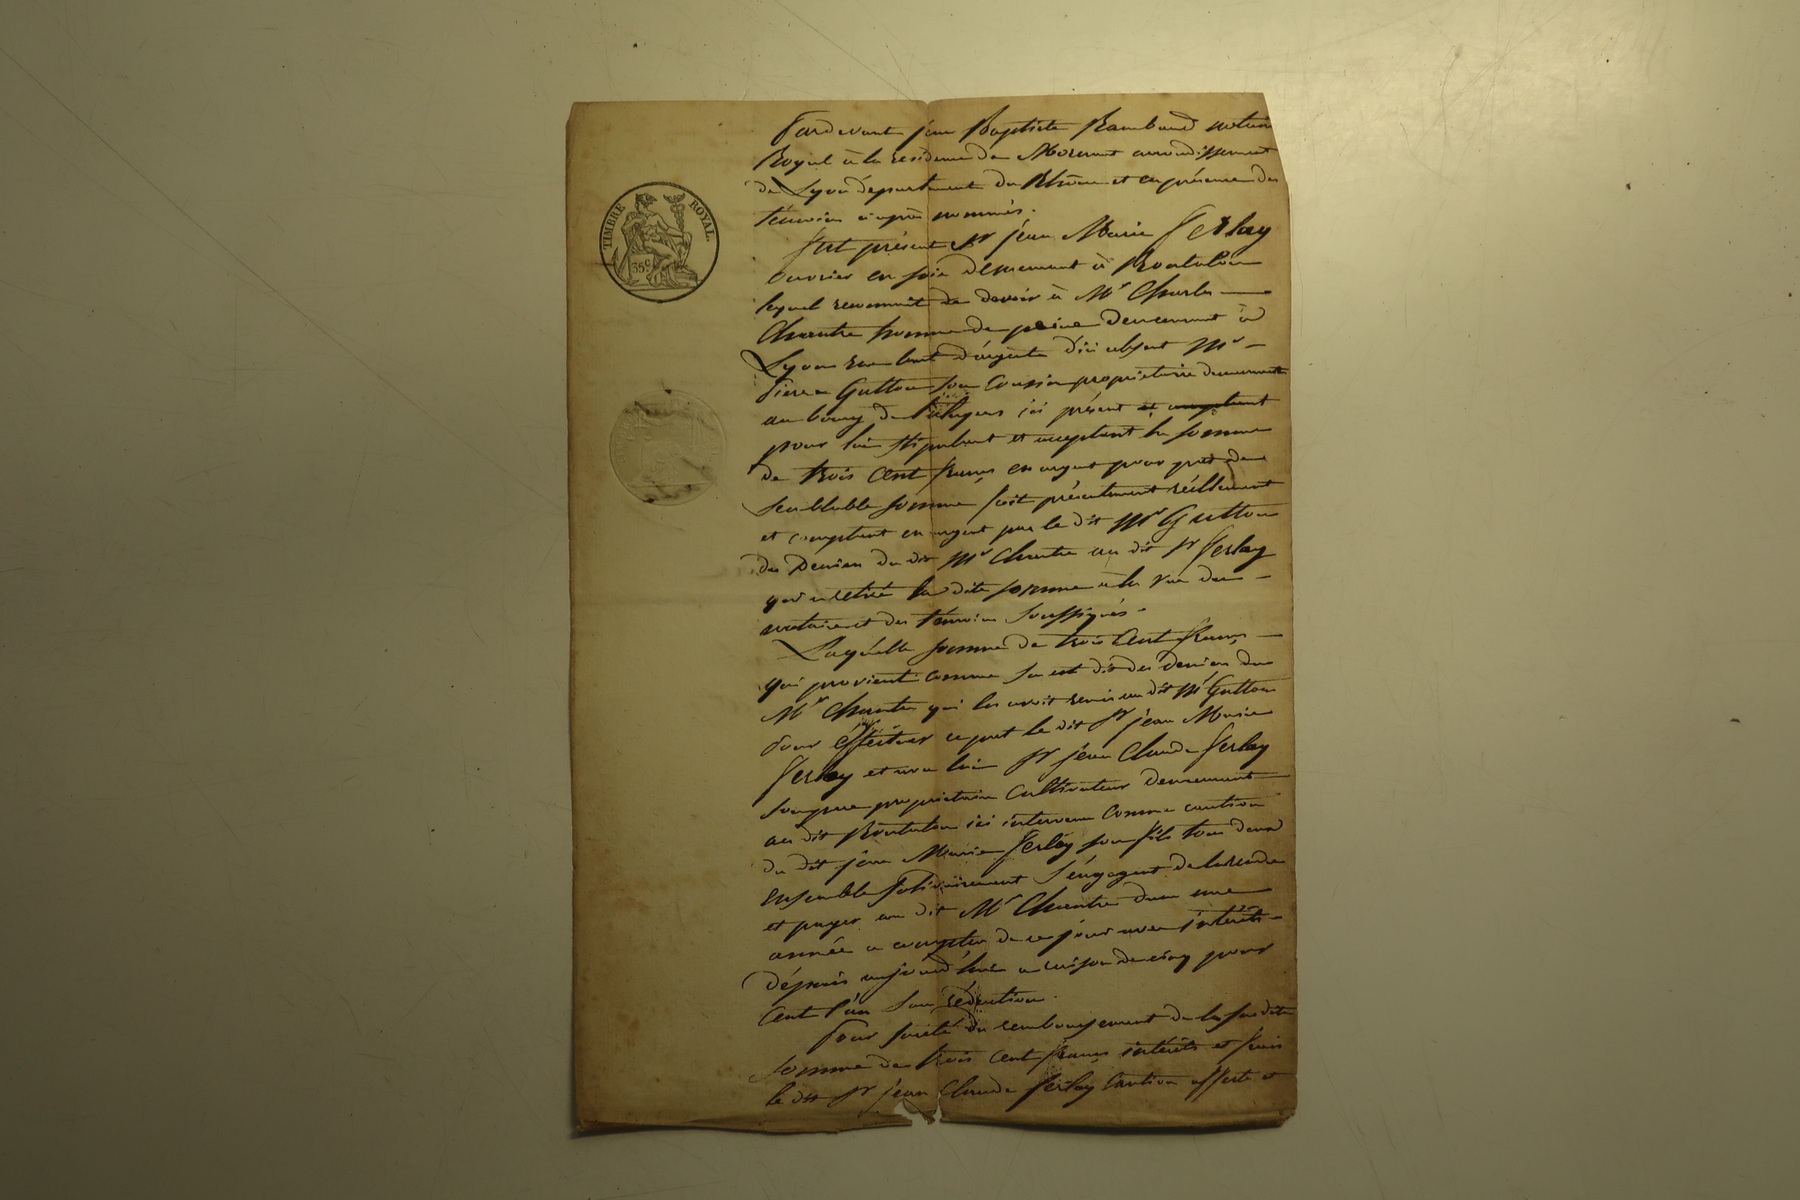 TIMBRE ROYAL.
35 c.
Pardevant jean Baptiste Rambaud notaire
Royal à la residence de Mornant arrondissement
de Lyon département du Rhône et en présence des
témoins ci après nommés.
Fut présent Sr jean Marie Ferlay
ouvrier en soie demeurant à Rontalon
lequel reconnait de devoir à Mr Charles
Chantre homme de peine demeurant à
Lyon rue d'ici absent Mr
Pierre Gutton son Cousin propriétaire demeurant
au bourg de ici présent et acceptant
pour lui stipulant et acceptant la somme
de trois cent francs en argent pour prêt de
semblable somme fait présentement réellement
et comptant en argent par le dit Mr Gutton
des deniers du dit Mr Chantre au dit Sr Ferlay
qui a retiré la dite somme à la vue du
notaire et des témoins soussignés.
Laquelle somme de trois Cent francs
qui provient comme sus est dit des deniers du
Mr Chantre qui les avoit remis au dit Mr Gutton
pour éffectuer ce pret le dit Sr jean Marie
Ferlay et avec lui Sr jean Claude Ferlay
son pere propriétaire Cultivateur demeurant
au dit Rontalon ici intervenu comme caution
du dit jean Marie Ferlay son fils tous deux
ensemble solidairement s'engagent de la rendre
et payer au dit Mr Chantre dans une
année a compter de ce jour avec intérêts
dépuis aujourd'hui a raison de cinq pour
Cent l'an sans rétention.
Pour sureté du remboursement de la susdite
somme de trois cent francs intérêts et frais
le dit Sr jean Claude Ferlay Caution affecte et